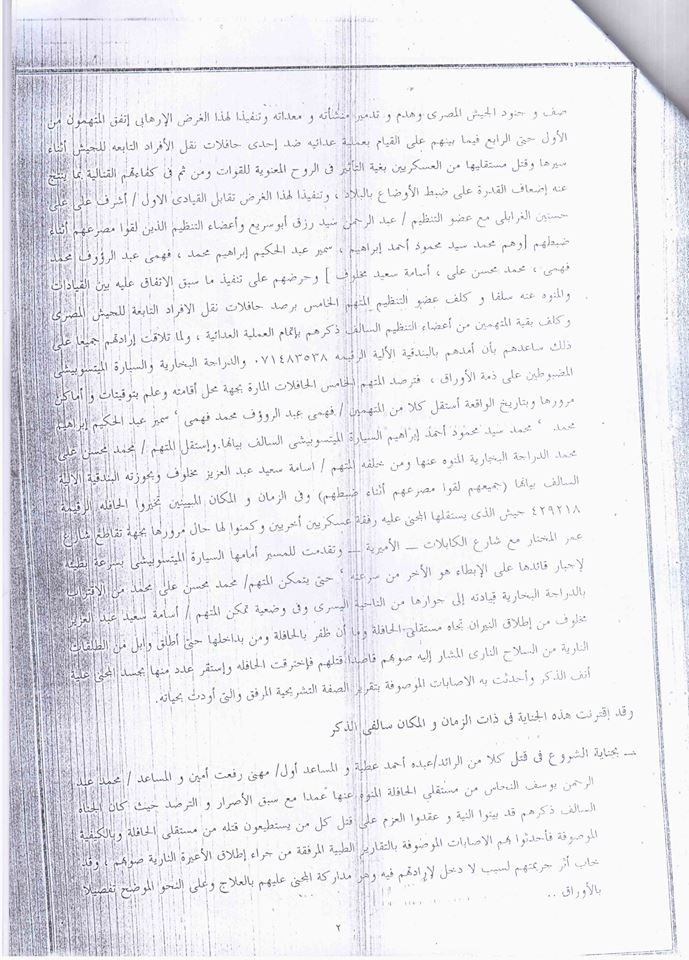 صف و جنود الجيش المصرى وهدم و تدمير منشأته و معداته وتنفيذا لهذا الغرض الإرهابي إتفق المتهمون من
الأول حتى الرابع فيما بينهم على القيام بعملية عدائيه ضد إحدى حافلات نقل الأفراد التابعه للجيش أثناء
سيرها وقتل مستقليها من العسكريين بغية التأثير فى الروح المعنوية للقوات ومن ثم فى كفاءتهم القتالية بما ينتج
عنه إضعاف القدرة على ضبط الأوضاع بالبلاد ، وتنفيذا لهذا الغرض تقابل القيادى الاول / أشرف على على
حسنين الغرابلى مع عضو التنظيم / عبد الرحمن سيد رزق أبوسريع وأعضاء التنظيم الذين لقوا مصرعهم أثناء
ضبطهم [وهم محمد سيد محمود أحمد إبراهيم ، سمير عبد الحكيم إبراهيم محمد ، فهمى عبد الرؤوف محمد
فهمى ، محمد محسن على ، أسامة سعيد مخلوف ] وحرضهم على تنفيذ ما سبق الاتفاق عليه بين القيادات
والمنوه عنه سلفا و كلف عضو التنظيم المتهم الخامس برصد حافلات نقل الافراد التابعة للجيش المصرى
وكلف بقية المتهمين من أعضاء التنظيم السالف ذكرهم بإتمام العملية العدائية ، ولما تلاقت إرادتهم جميعا على
ذلك ساعدهم بأن أمدهم بالبندقية الألية الرقيمه ٠٧١٤٨٣٥٣٨ والدراجة البخارية والسيارة الميتسوبيشى
المضبوطين على ذمة الأوراق ، فترصد المتهم الخامس الحافلات المارة بجهة محل أقامته وعلم بتوقيتات و أماكن
مرورها وبتاريخ الواقعة أستقل كلا من المتهمين / فهمى عبد الرؤوف محمد فهمى ، سمير عبد الحكيم إبراهيم
محمد ، محمد سيد محمود أحمد إبراهيم السيارة الميتسوبيشى السالف بيانها.وإستقل المتهم / محمد محسن على
محمد الدراجة البخارية المنوه عنها ومن خلفه المتهم / اسامة سعيد عبد العزيز مخلوف وبحوزته البندقية الالية
السالف بيانها (جميعهم لقوا مصرعهم أثناء ضبطهم) وفى الزمان و المكان المبينين تخيروا الحافله الرقيمة
٤٢٩٢١٨ جيش الذى يستقلها المجنى عليه رفقة عسكريين أخريين وكمنوا لها حال مرورها بجهة تقاطع شارع
عمر المختار مع شارع الكابلات – الأميرية – وتقدمت للمسير أمامها السيارة الميتسوبيشى بسرعة بطيئه
لإجبار قائدها على الإبطاء هو الأخر من سرعته ، حتى يتمكن المتهم/ محمد محسن على محمد من الاقتراب
بالدراجة البخارية قيادته إلى جوارها من الناحية اليسرى وفى وضعية تمكن المتهم / أسامة سعيد عبد العزيز
مخلوف من إطلاق النيران تجاه مستقلى الحافلة وما أن ظفر بالحافلة ومن بداخلها حتى أطلق وابل من الطلقات
النارية من السلاح النارى المشار إليه صوبهم قاصدا قتلهم فإخترقت الحافله وإستقر عدد منها بجسد المجنى علية
أنف الذكر وأحدثت به الاصابات الموصوفة بتقرير الصفة التشريحية المرفق والتى أودت بحياته.
وقد إقترنت هذه الجناية فى ذات الزمان و المكان سالفى الذكر
– بجناية الشروع فى قتل كلا من الرائد/عبده أحمد عطية و المساعد أول/ مهنى رفعت أمين و المساعد / محمد عبد
الرحمن يوسف النحاس من مستقلي الحافلة المنوه عنها عمدا مع سبق الأصرار و الترصد حيث كان الجناه
السالف ذكرهم قد بيتوا النية و عقدوا العزم على قتل كل من يستطيعون قتله من مستقلي الحافلة وبالكيفية
الموصوفة فأحدثوا بهم الاصابات الموصوفة بالتقارير الطبية المرفقة من جراء إطلاق الأعيرة النارية صوبهم ، وقد
خاب أثر جريمتهم لسبب لا دخل لإرادتهم فيه وهو مداركة المجنى عليهم بالعلاج وعلى النحو الموضح تفصيلا
بالأوراق ..
٢